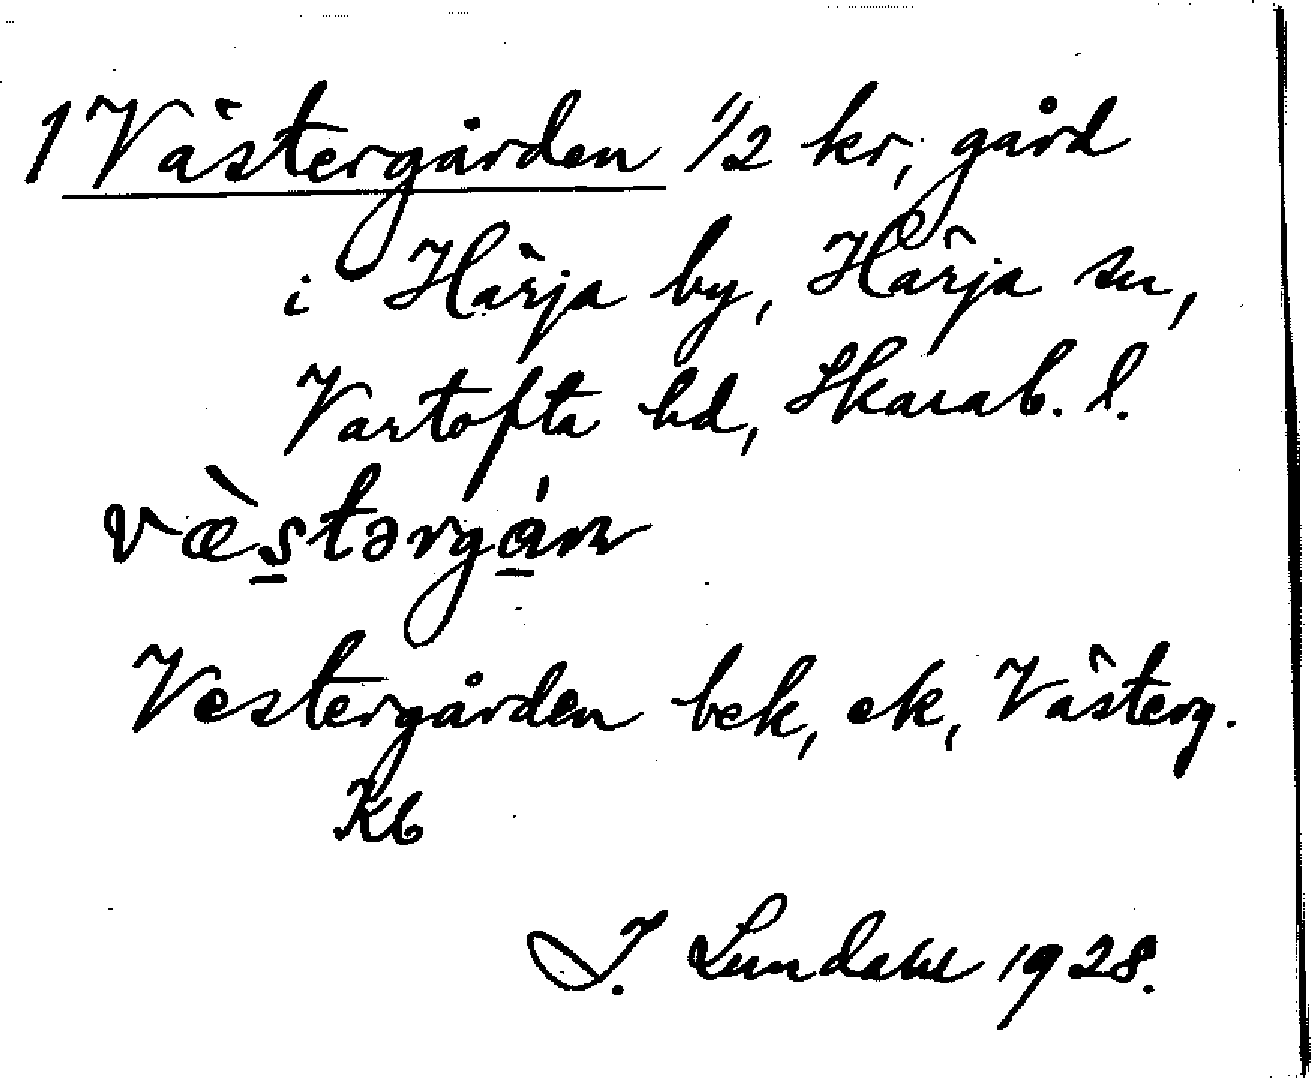 1 Västergården 1/2 kr, gård
i Härja by, Härja sn,
Vartofta hd, Skarab. l.
væ̀s̠tərgá̠n
Vestergården bek, ek, Västerg.
Kb
I. Lundahl 1928.